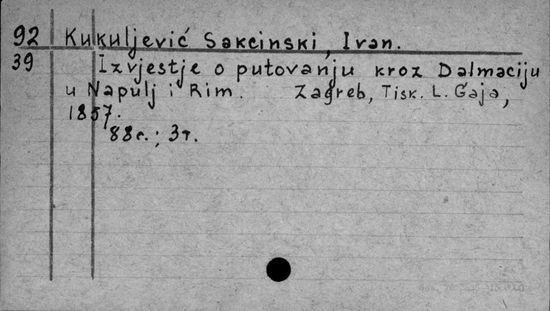 92 Kukuljević Sakcinski, Ivan.
39 Izvjestje o putovanju kroz Dalmaciju
u Napulj i Rim. Zagreb, Tisk. L. Gaja,
1857.
88c.; 3т.